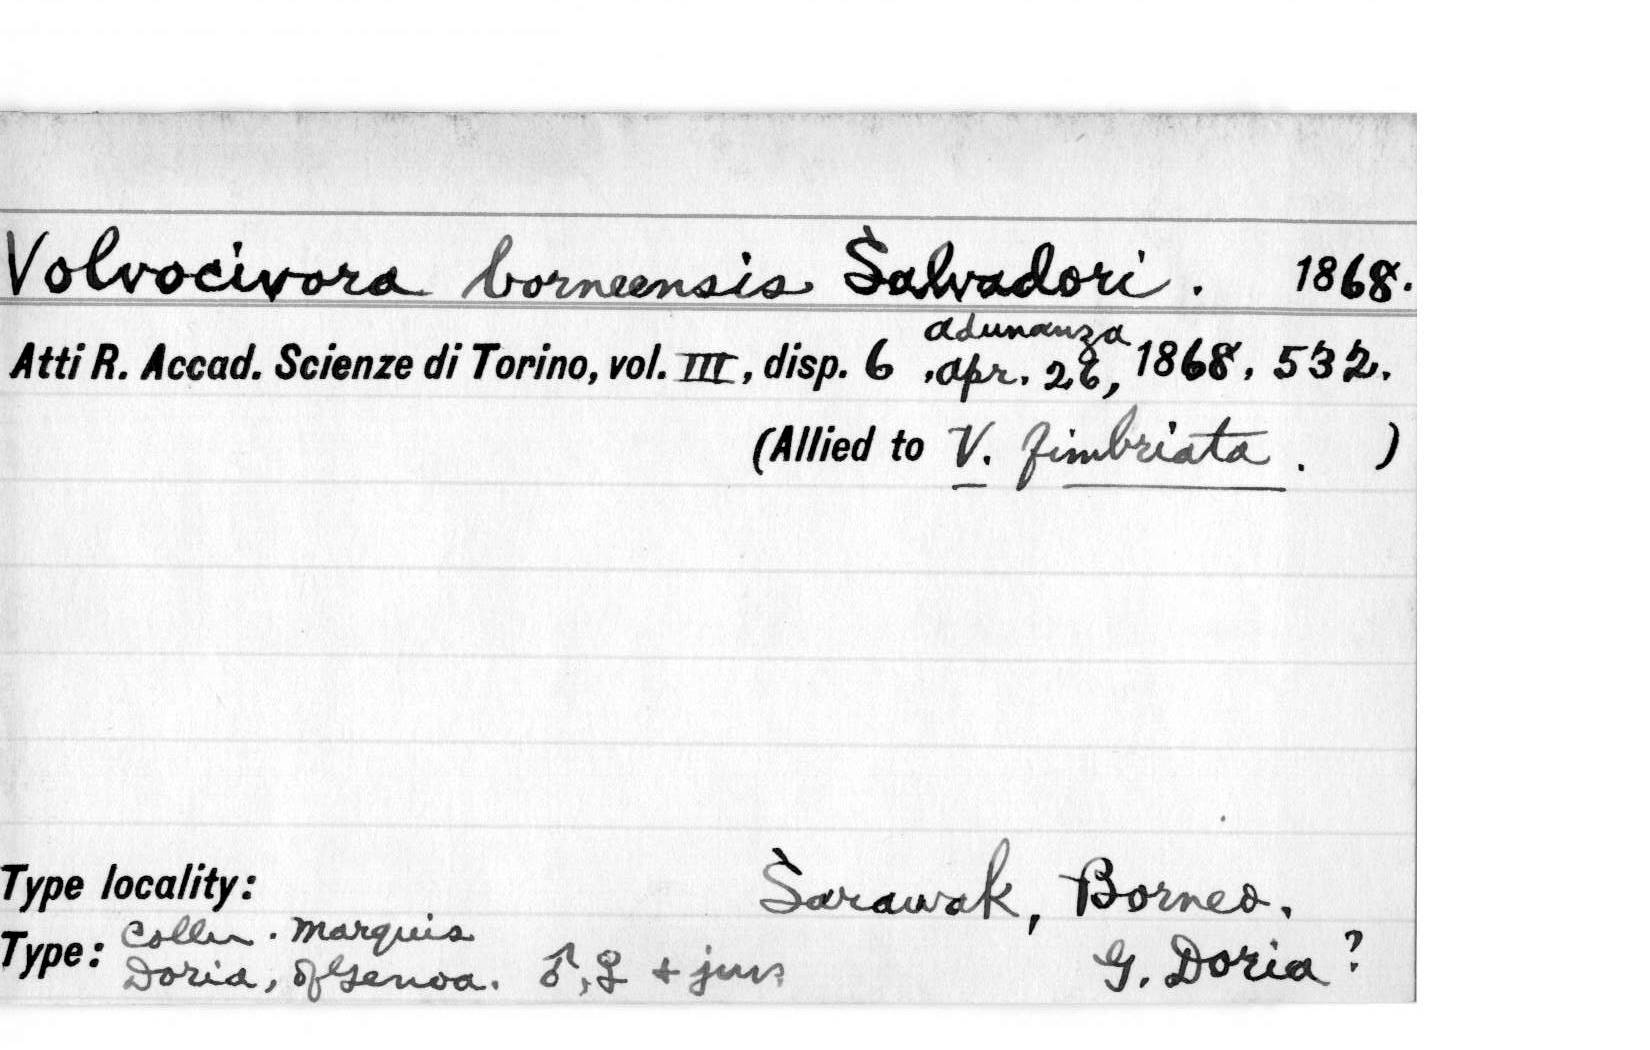 Volvocivora borneensis Salvadori. 1868.
adunanza
Atti R. Accad. Scienze di Torino, vol. III, disp. 6, Apr. 26, 1868, 532.
(Allied to V. fimbriata. )
Type locality: Sarawak, Borneo.
Type: Colln. Marquis
Doria, of Genoa. ♂, ♀ + juv. G. Doria?